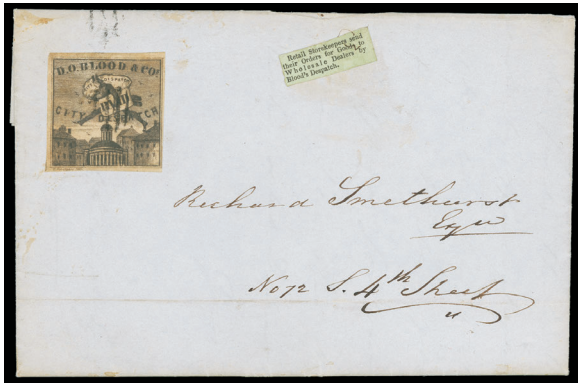 D.O. BLOOD & Co's
CITY DESPATCH
Retail Storekeepers send
their Orders for Goods to
Wholesale Dealers by
Blood's Despatch.
Richard Smethurst
Esqr
No 72 S. 4th Street